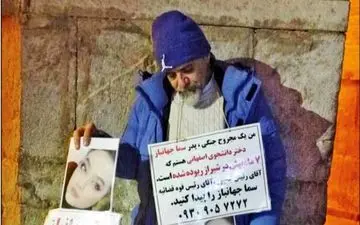 من یک مجروح جنگی ، پدر سما جهانباز
دختر دانشجوی اصفهانی هستم که
۷ ماه پیش در شیراز ربوده شده است.
آقای رئیس جمهور ، آقای رئیس قوه قضائیه
سما جهانباز را پیدا کنید.
۰۹۳۰ ۹۰۵ ۷۲۷۲